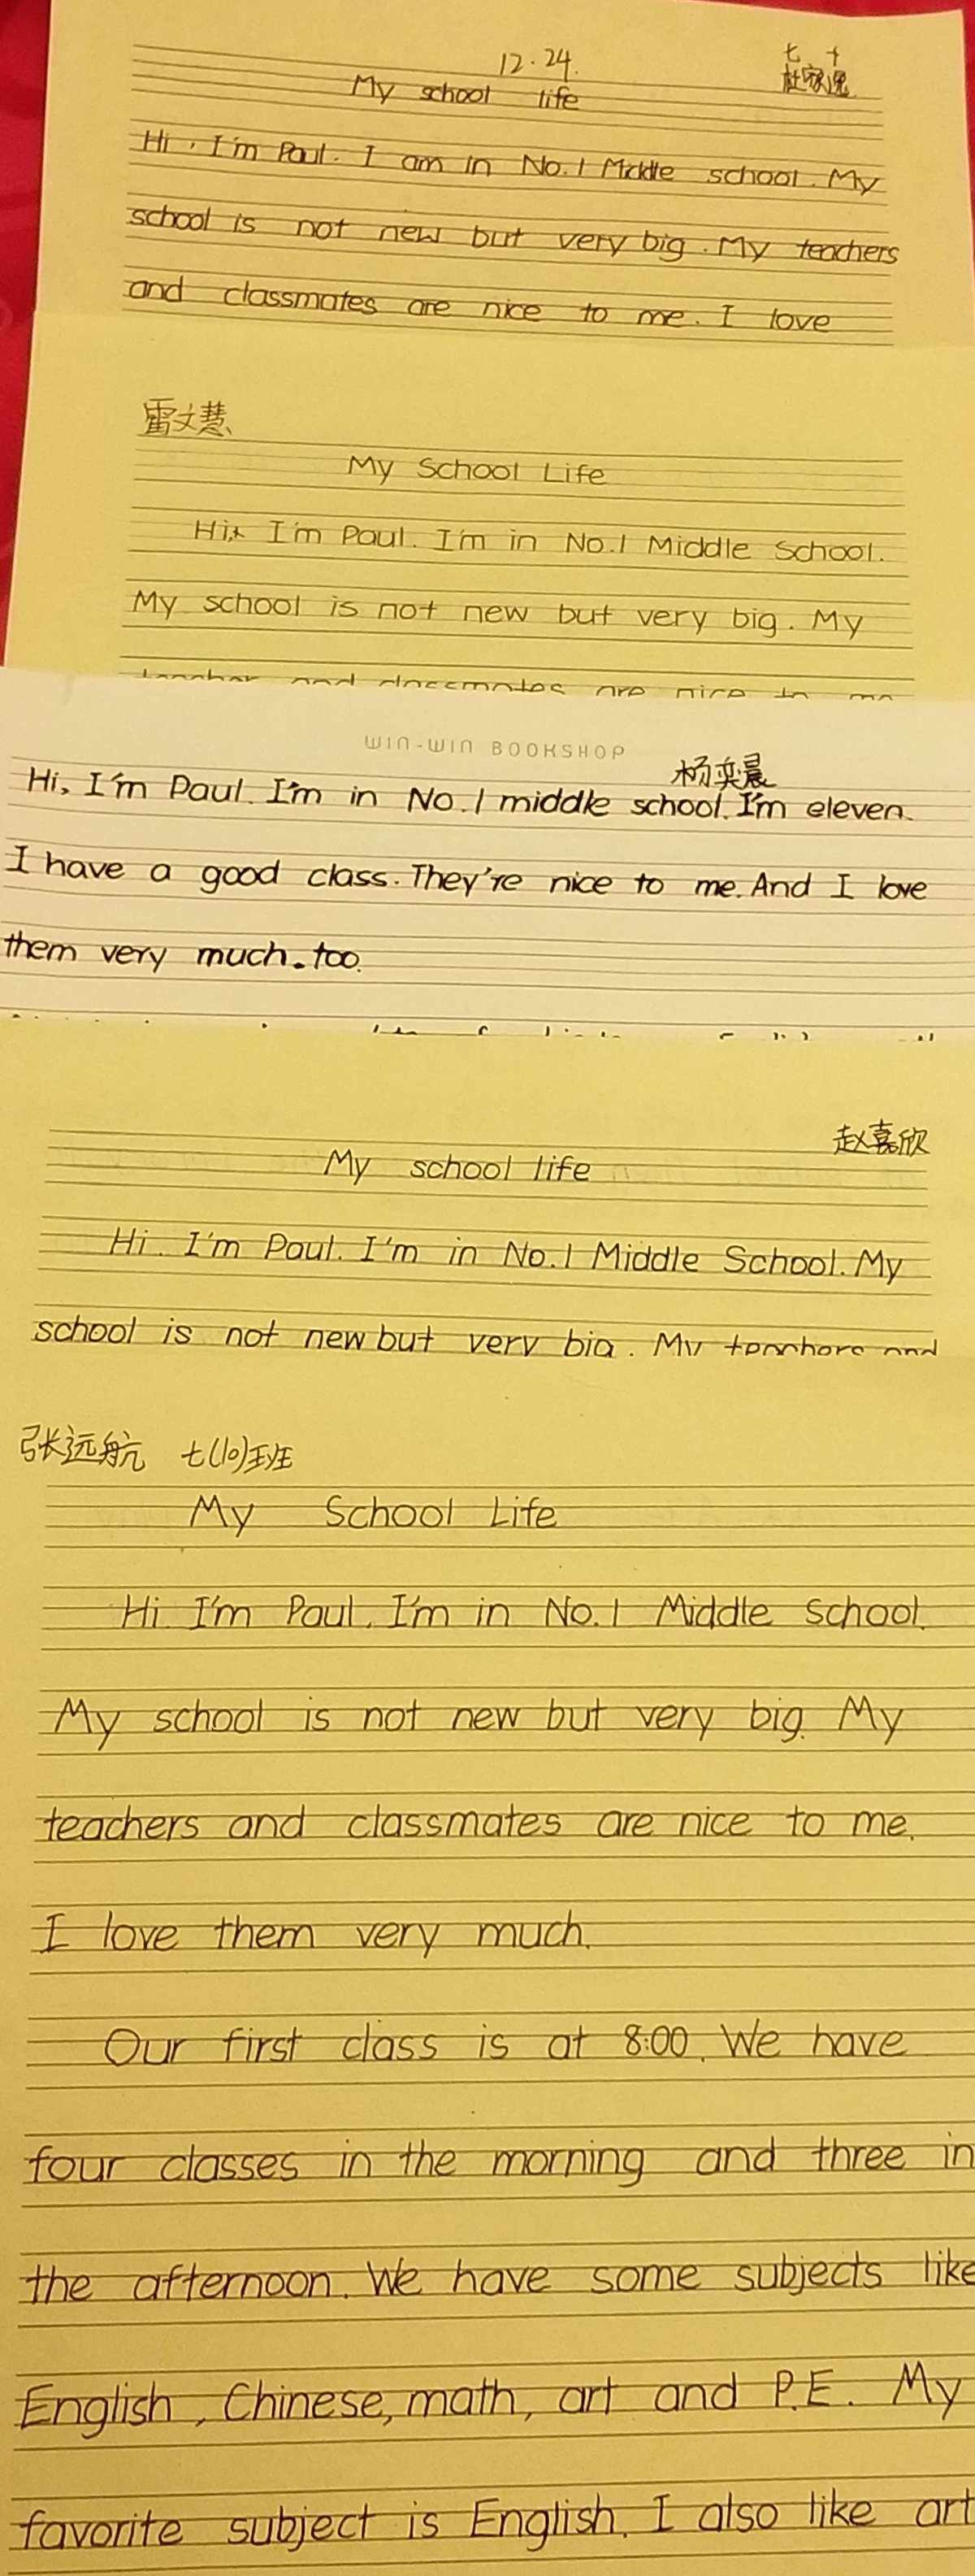 12.24.
七 十
My school life
杜家逸
Hi, I'm Paul. I am in No.1 Middle school. My
school is not new but very big. My teachers
and classmates are nice to me. I love
雷文慧
My School Life
Hi, I'm Paul. I'm in No.1 Middle School.
My school is not new but very big. My
teacher and classmates are nice to me
WIN-WIN BOOKSHOP
杨奕晨
Hi, I'm Paul. I'm in No.1 middle school. I'm eleven.
I have a good class. They're nice to me. And I love
them very much. too.
赵嘉欣
My school life
Hi. I'm Paul. I'm in No.1 Middle School. My
school is not new but very big. My teachers and
张远航 七(10)班
My School Life
Hi. I'm Paul. I'm in No.1 Middle School.
My school is not new but very big. My
teachers and classmates are nice to me.
I love them very much.
Our first class is at 8:00. We have
four classes in the morning and three in
the afternoon. We have some subjects like
English, Chinese, math, art and P.E. My
favorite subject is English. I also like art